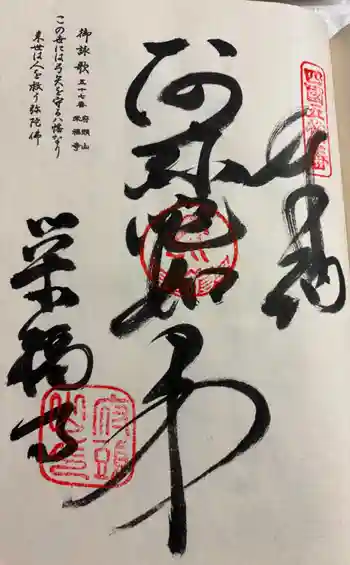 四國五十七番
奉納
阿弥陀如来
栄福寺
府頭山
御詠歌 五十七番 府頭山 栄福寺
この世には弓矢を守る八幡なり
来世は人を救う弥陀佛